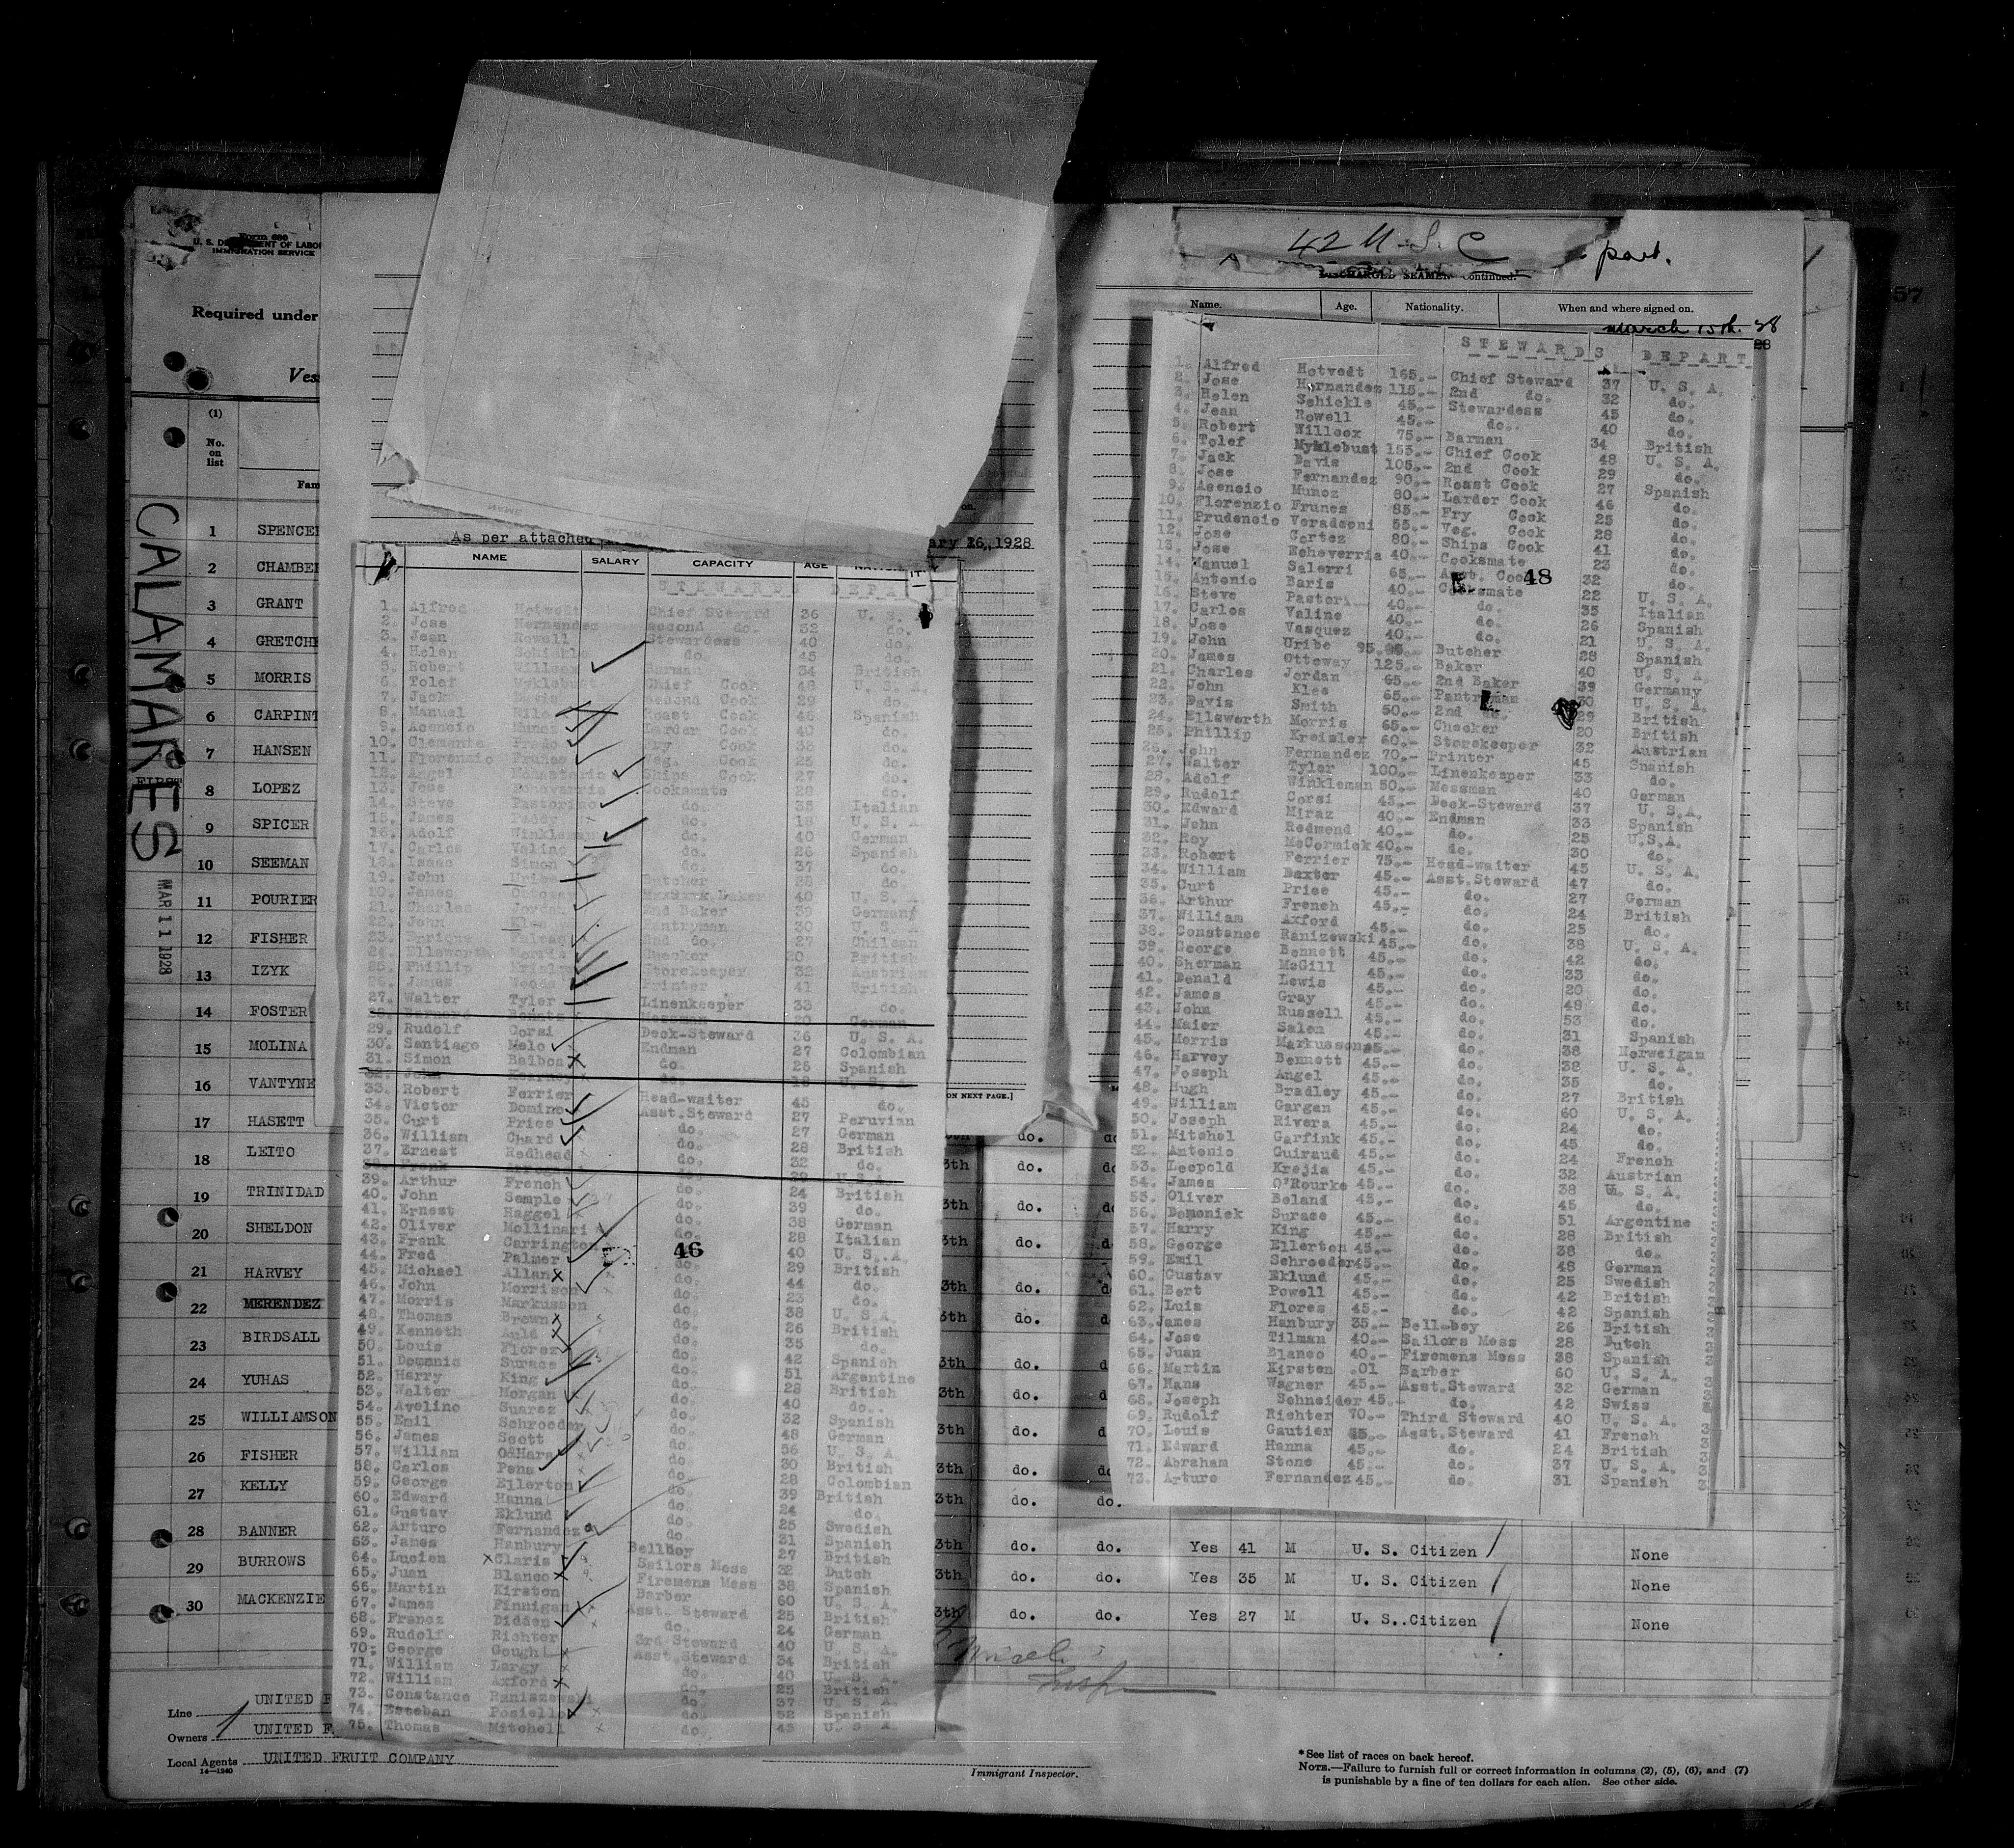 Form 680
U. S. DEPARTMENT OF LABOR
IMMIGRATION SERVICE
Required under
Ves
(1)
No. on list
Fam
CALAMARES
FIRST
MAR 11 1928
1 SPENCER
2 CHAMBE
3 GRANT
4 GRETCHE
5 MORRIS
6 CARPINT
7 HANSEN
8 LOPEZ
9 SPICER
10 SEEMAN
11 POURIER
12 FISHER
13 IZYK
14 FOSTER
15 MOLINA
16 VANTYNE
17 HASETT
18 LEITO
19 TRINIDAD
20 SHELDON
21 HARVEY
22 MERENDEZ
23 BIRDSALL
24 YUHAS
25 WILLIAMSON
26 FISHER
27 KELLY
28 BANNER
29 BURROWS
30 MACKENZIE
Line UNITED F
Owners UNITED F
Local Agents UNITED FRUIT COMPANY
14—1240
Immigrant Inspector.
As per attached
ary 26,1928
NAME SALARY CAPACITY AGE NATIONALITY
STEWARDS DEPA
1. Alfred Hotvedt Chief Steward 36 U. S.
2. Jose Hernandez second do. 32 do.
3. Jean Rowell Stewardess 40 do.
4. Helen Schickle do. 45 do.
5. Robert Willcox Barman 34 British
6. Tolef Myklebust Chief Cook 48 U. S. A.
7. Jack Davis Second Cook 29 do.
8. Manuel Roast Cook 46 Spanish
9. Asencio Munoz Larder Cook 40 do.
10. Clemente Prado Fry Cook 32 do.
11. Florenzio Frunes Veg. Cook 25 do.
12. Angel Monasterio Ships Cook 27 do.
13. Jose Echavarria Cooksmate 28 do.
14. Steve Pastorino do. 35 Italian
15. James do. 18 U. S. A
16. Adolf Winkleman do. 40 German
17. Carlos Valino do. 26 Spanish
18. Isaac Simon do. 37 do.
19. John Uribe Butcher 28 do.
20. James Ottoway Baker 40 U. S. A.
21. Charles Jordan 2nd Baker 39 German
22. John Klee Pantryman 30 U. S. A
23. Enrique 2nd do. 27 Chilean
24. Ellsworth Morris Checker 20 British
25. Phillip Storekeeper 32 Austrian
26. James Woods Printer 41 British
27. Walter Tyler Linenkeeper 33 do.
28. Messman 20 German
29. Rudolf Corsi Deck-Steward 36 U. S. A.
30. Santiago Melo Endman 27 Colombian
31. Simon Balboa do. 25 Spanish
32. John do. 18 U. S. A
33. Robert Ferrier Head-waiter 45 do.
34. Victor Domino Asst.Steward 27 Peruvian
35. Curt Price do. 27 German
36. William Chard do. 28 British
37. Ernest Redhead do. 32 do.
38. Frank do. 29 U.S.A
39. Arthur French do. 24 British
40. John Semple do. 39 do.
41. Ernest Haggel do. 38 German
42. Oliver Mollinari do. 28 Italian
43. Frank Carrington do. 40 U. S. A
44. Fred Palmer do. 29 British
46
45. Michael Allan do. 44 do.
46. John Morrison do. 23 do.
47. Morris Markusson do. 38 U. S.A.
48. Thomas Brown do. 26 British
49. Kenneth Auld do. 35 do.
50. Louis Florez do. 42 Spanish
51. Domonic Surace do. 51 Argentine
52. Harry King do. 28 British
53. Walter Morgan do. 40 do.
54. Avelino Suarez do. 32 Spanish
55. Emil Schroeder do. 48 German
56. James Scott do. 56 U. S. A
57. William O&Hara do. 30 British
58. Carlos Pena do. 28 Colombian
59. George Ellerton do. 39 British
60. Edward Hanna do. 24 do.
61. Gustav Eklund do. 25 Swedish
62. Arturo Fernandez do. 31 Spanish
63. James Hanbury Bellboy 27 British
64. Lucien Claris Sailors Mess 32 Dutch
65. Juan Blanco Firemens Mess 38 Spanish
66. Martin Kirsten Barber 60 U. S. A.
67. James Finnigan Asst. Steward 25 British
68. Franez Didden do. 24 German
69. Rudolf Richter 3rd Steward 40 U. S. A.
70. George Gough Asst.Steward 34 British
71. William Largy do. 40 U. S. A.
72. William Axford do. 25 British
73. Constance Raniszewski do. 37 U. S. A.
74. Esteban Posiello do. 52 Spanish
75. Thomas Mitchell do. 43 U. S. A.
ON NEXT PAGE.]
42 U.S.C part.
DISCHARGED SEAMEN Continued.
Name. Age. Nationality. When and where signed on.
March 15th. 28
28
57
STEWARDS DEPART
1. Alfred Hotvedt 165.- Chief Steward 37 U. S. A.
2. Jose Hernandez 115.- 2nd do. 32 do.
3. Helen Schickle 45.- Stewardess 45 do.
4. Jean Rowell 45.- do. 40 do.
5. Robert Willcox 75.- Barman 34 British
6. Tolef Myklebust 153.- Chief Cook 48 U. S. A.
7. Jack Davis 105.- 2nd Cook 29 do.
8. Jose Fernandez 90.- Roast Cook 27 Spanish
9. Asencio Munoz 80.- Larder Cook 46 do.
10. Florenzio Frunes 85.- Fry Cook 25 do.
11. Prudencio Veradconi 55.- Veg. Cook 28 do.
12. Jose Cortez 80.- Ships Cook 41 do.
13. Jose Echeverria 40.- Cooksmate 23 do.
14. Manuel Salerri 65.- Asst. Cook 32 do.
48
15. Antonio Baris 40.- Cooksmate 22 U. S. A.
16. Steve Pastori 40.- do. 35 Italian
17. Carlos Valine 40.- do. 26 Spanish
18. Jose Vasquez 40.- do. 21 U. S. A.
19. John Uribe 95. Butcher 28 Spanish
20. James Ottoway 125.- Baker 40 U. S. A.
21. Charles Jordan 65.- 2nd Baker 39 Germany
22. John Klee 65.- Pantryman 30 U. S. A.
23. Davis Smith 50.- 2nd do. 29 British
24. Ellsworth Morris 65.- Checker 20 British
25. Phillip Kreisler 60.- Storekeeper 32 Austrian
26. John Fernandez 70.- Printer 45 Spanish
27. Walter Tyler 100.- Linenkeeper 33 do.
28. Adolf Winkleman 50.- Messman 40 German
29. Rudolf Corsi 45.- Deck-Steward 37 U. S.A.
30. Edward Miraz 40.- Endman 33 Spanish
31. John Redmond 40.- do. 25 U.S.A.
32. Roy McCormick 40.- do. 30 do.
33. Robert Ferrier 75.- Head-waiter 45 U. S. A.
34. William Baxter 45.- Asst.Steward 47 do.
35. Curt Price 45.- do. 27 German
36. Arthur French 45.- do. 24 British
37. William Axford 45.- do. 25 do.
38. Constance Ranizewski 45.- do. 38 U. S. A.
39. George Bennett 45.- do. 42 do.
40. Sherman McGill 45.- do. 33 do.
41. Donald Lewis 45.- do. 20 do.
42. James Gray 45.- do. 48 do.
43. John Russell 45.- do. 53 do.
44. Maier Salon 45.- do. 31 Spanish
45. Morris Markusson 45.- do. 38 Norweigan
46. Harvey Bennett 45.- do. 38 U. S. A.
47. Joseph Angel 45.- do. 35 do.
48. Hugh Bradley 45.- do. 27 British
49. William Gargan 45.- do. 60 U. S. A.
50. Joseph Rivera 45.- do. 24 do.
51. Mitchel Garfink 45.- do. 45 do.
52. Antonio Guiraud 45.- do. 24 French
53. Leopold Krejia 45.- do. 32 Austrian
54. James O'Rourke 45.- do. 38 U. S. A.
55. Oliver Beland 45.- do. 45 do.
56. Domonick Surace 45.- do. 51 Argentine
57. Harry King 45.- do. 28 British
58. George Ellerton 45.- do. 38 do.
59. Emil Schroeder 45.- do. 48 German
60. Gustav Eklund 45.- do. 25 Swedish
61. Bert Powell 45.- do. 42 British
62. Luis Flores 45.- do. 42 Spanish
63. James Hanbury 35.- Bell-boy 26 British
64. Jose Tilman 40.- Sailors Mess 28 Dutch
65. Juan Blanco 40.- Firemens Mess 38 Spanish
66. Martin Kirsten .01 Barber 60 U. S. A.
67. Hans Wagner 45.- Asst.Steward 32 German
68. Joseph Schneider 45.- do. 42 Swiss
69. Rudolf Richter 70.- Third Steward 40 U. S. A.
70. Louis Gautier 45.- Asst.Steward 41 French
71. Edward Hanna 45.- do. 24 British
72. Abraham Stone 45.- do. 37 U. S. A.
73. Arturo Fernandez 45.- do. 31 Spanish
3th do. do.
3th do. do.
3th do. do.
3th do. do.
3th do. do.
3th do. do.
3th do. do.
3th do. do.
3th do. do.
3th do. do.
3th do. do. Yes 41 M U. S. Citizen None
3th do. do. Yes 35 M U. S. Citizen None
3th do. do. Yes 27 M U. S. Citizen None
Insp
*See list of races on back hereof.
NOTE.—Failure to furnish full or correct information in columns (2), (5), (6), and (7)
is punishable by a fine of ten dollars for each alien. See other side.